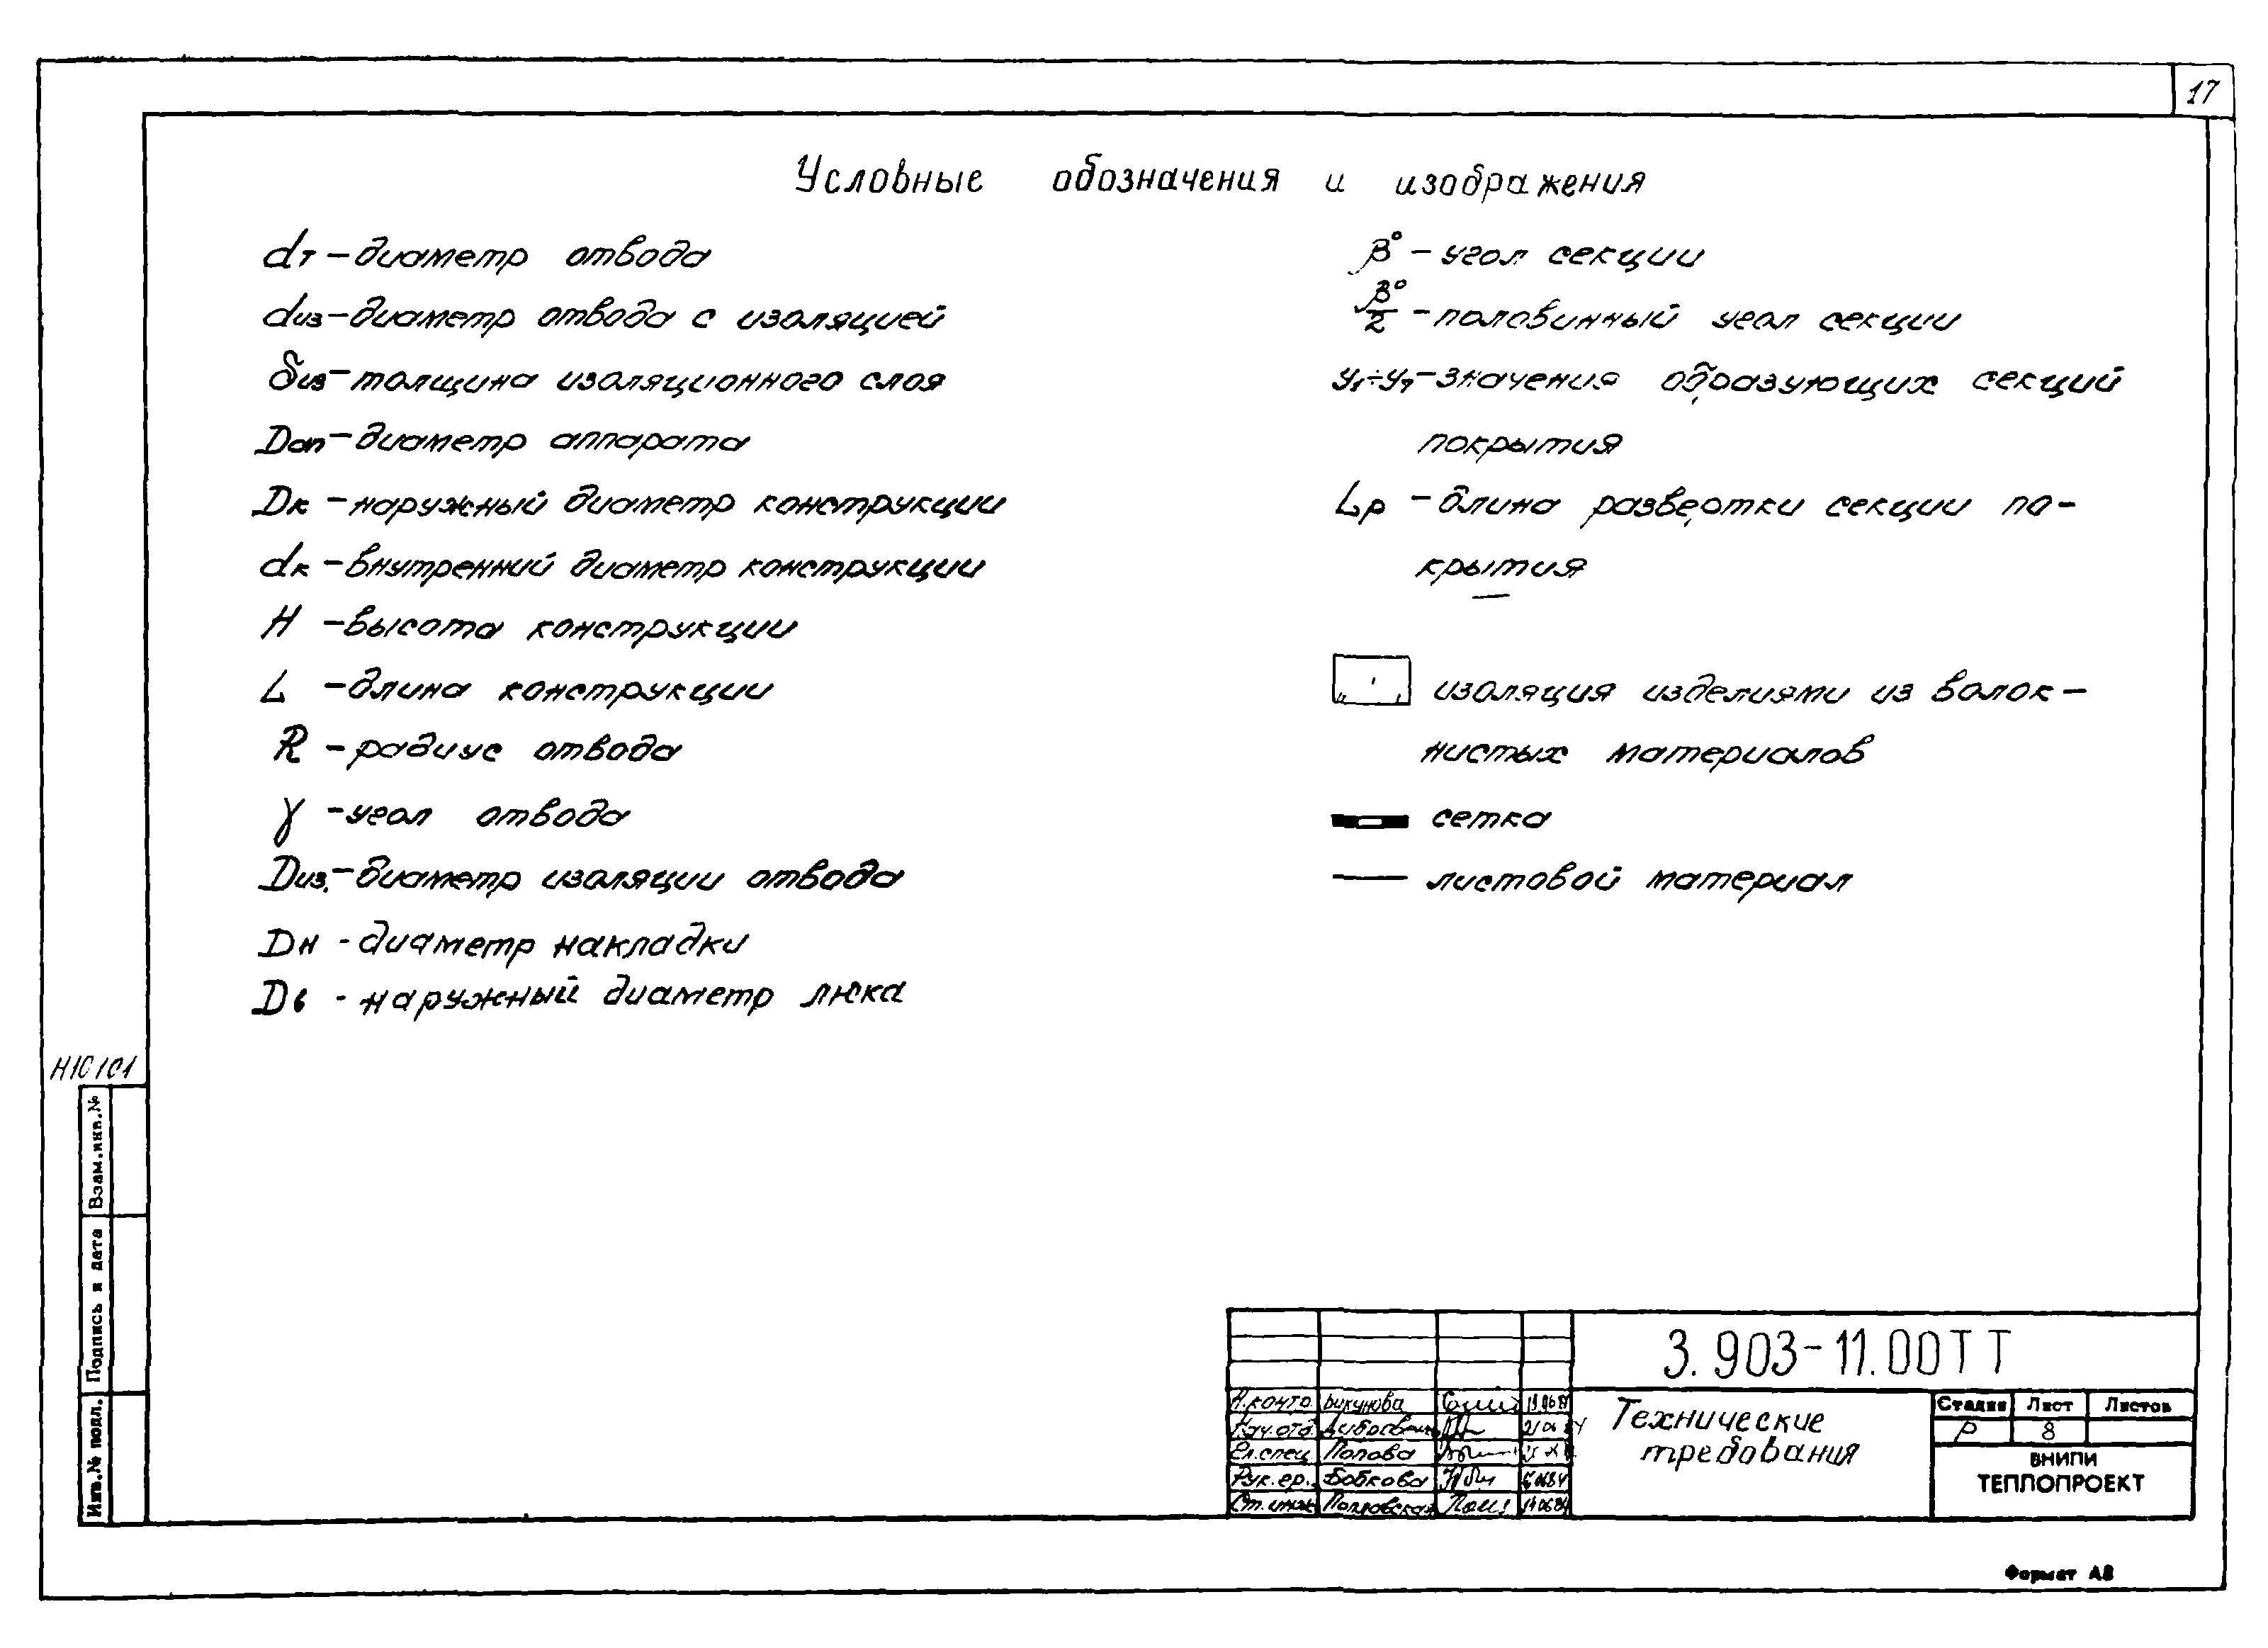 17
Условные обозначения и изображения
dт – диаметр отвода
dиз – диаметр отвода с изоляцией
δиз – толщина изоляционного слоя
Dап – диаметр аппарата
Dк – наружный диаметр конструкции
dк – внутренний диаметр конструкции
H – высота конструкции
L – длина конструкции
R – радиус отвода
γ – угол отвода
Dиз. – диаметр изоляции отвода
Dн - диаметр накладки
Dв - наружный диаметр люка
β° – угол секции
β°/2 – половинный угол секции
У₁÷У₇ – значения образующих секций
покрытия
Lр – длина развертки секции по-
крытия
изоляция изделиями из волок–
нистых материалов
сетка
листовой материал
Н10101
Взам.инв.№
Подпись и дата
Инв.№ подл.
3.903-11.00ТТ
Н.контр.
Нач.отд.
Гл.спец. Попова
Рук.гр. Бобкова
Ст.инж.
Технические
требования
Стадия Лист Листов
Р 8
ВНИПИ
ТЕПЛОПРОЕКТ
Формат